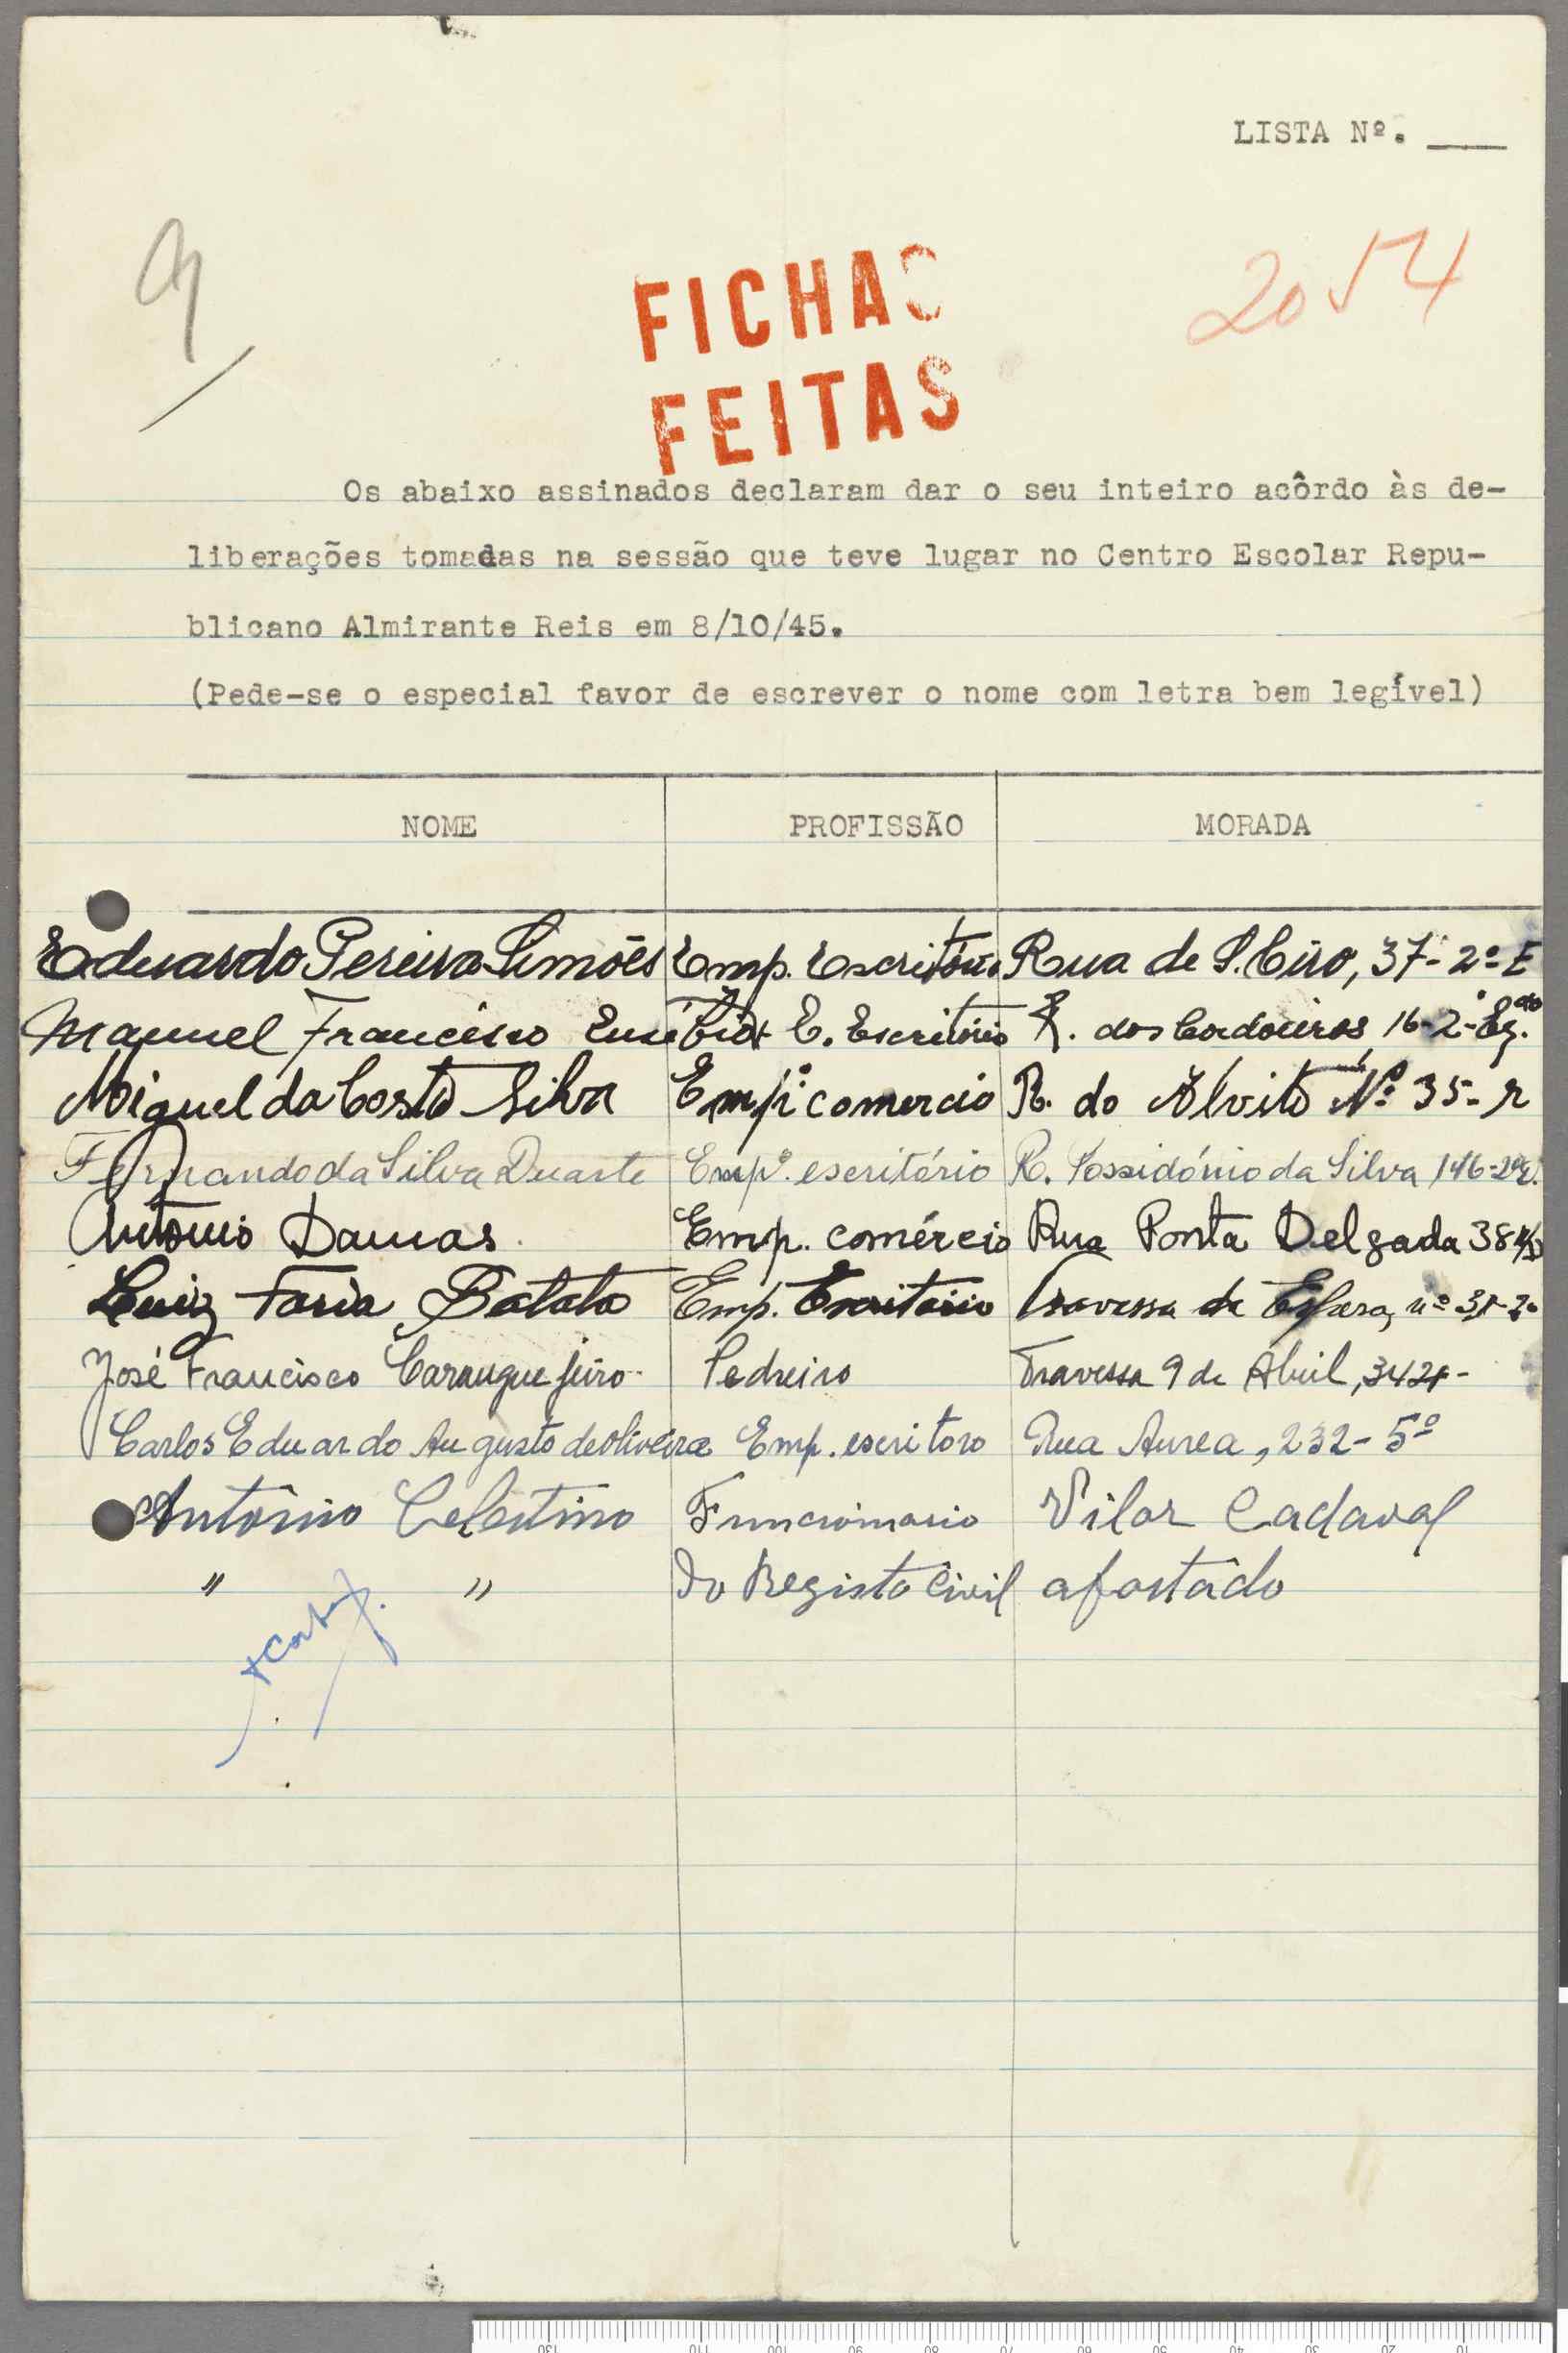 LISTA Nº. ___
9
2054
FICHAS
FEITAS
Os abaixo assinados declaram dar o seu inteiro acôrdo às de-
liberações tomadas na sessão que teve lugar no Centro Escolar Repu-
blicano Almirante Reis em 8/10/45.
(Pede-se o especial favor de escrever o nome com letra bem legível)
NOME PROFISSÃO MORADA
Eduardo Pereira Simões Emp. Escritório Rua de S. Ciro, 37-2º-E
Manuel Francisco Eusébio E. Escritório R. dos Cordoeiros 16-2-Eq.
Miguel da Costa Silva Empº comercio R. do Alvito Nº 35-r
Fernando da Silva Duarte Empº. escritório R. Possidónio da Silva 146-2º
António Damas. Emp. comércio Rua Ponta Delgada 38
Luiz Faria Batata Emp. Escritório Travessa da Espera, nº 31-2º
José Francisco Carangueijeiro Pedreiro Travessa 9 de Abril,
Carlos Eduardo Augusto de Oliveira Emp. escritoro Rua Aurea, 232-5º
António Celestino Funcionario Vilar Cadaval
" " Do Registo Civil afastádo